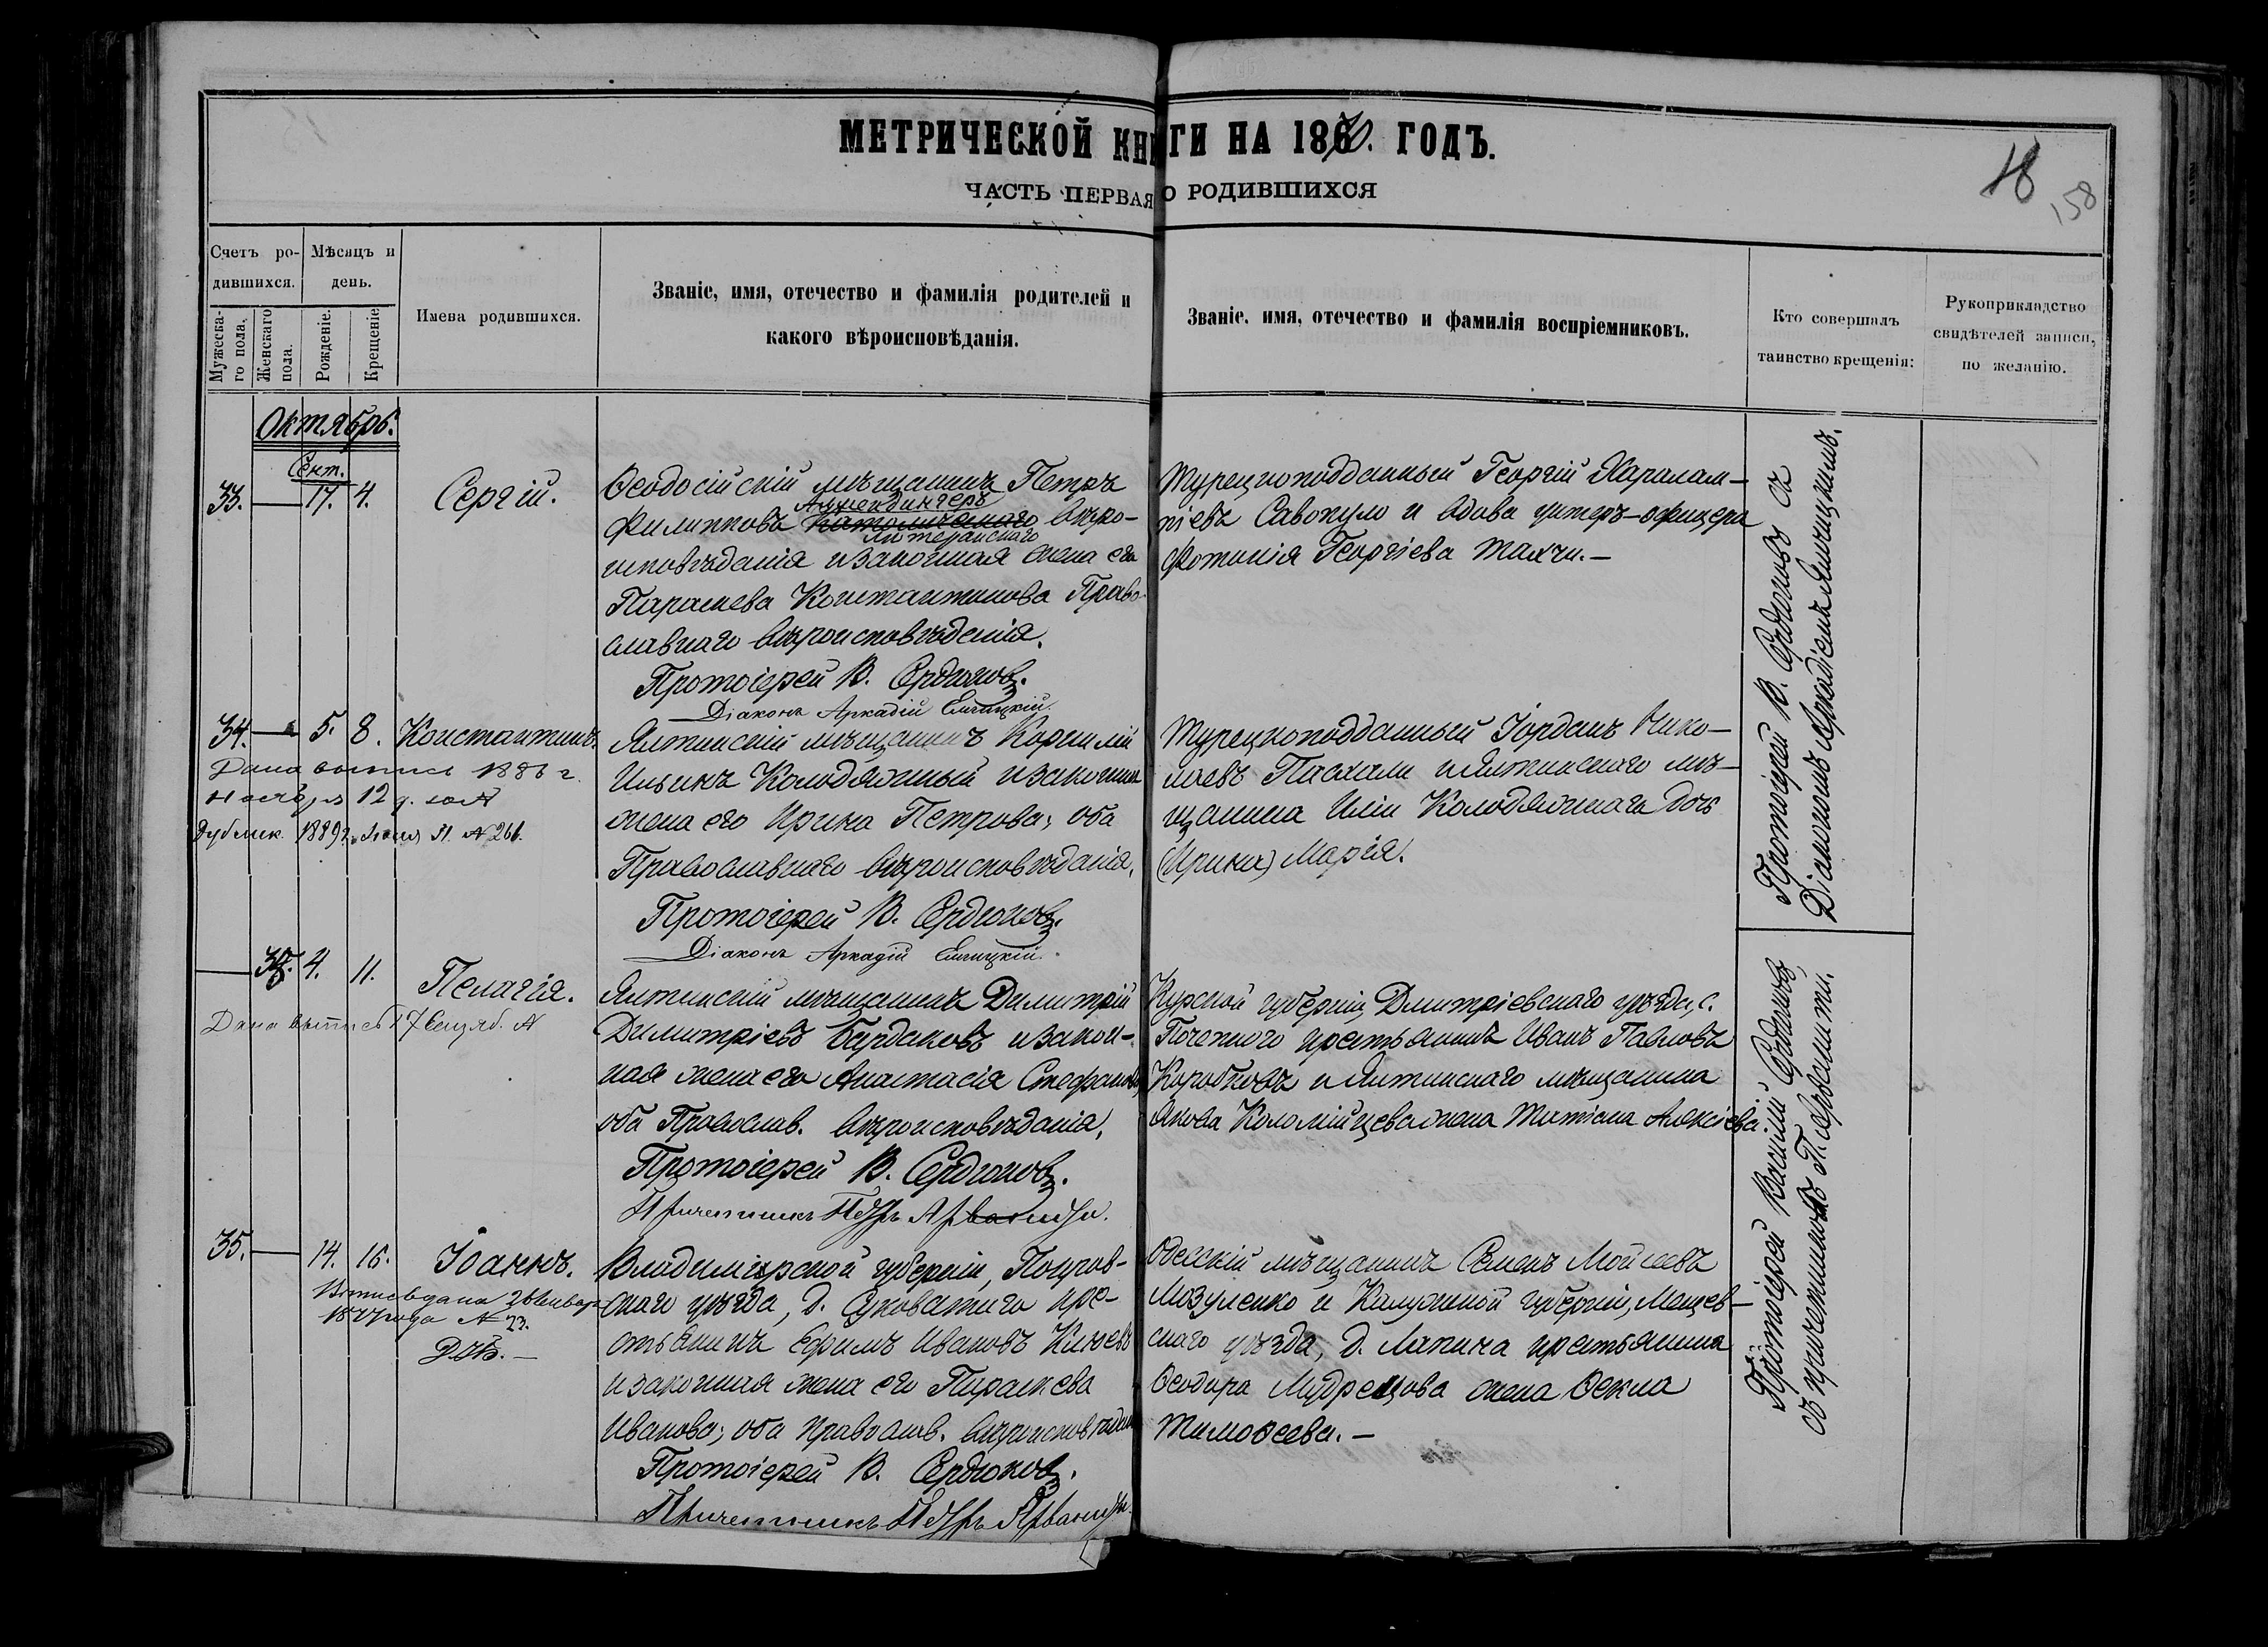 МЕТРИЧЕСКОЙ КНИГИ НА 1870. ГОДЪ.
ЧАСТЬ ПЕРВАЯ О РОДИВШИХСЯ
18
158
Счетъ ро-
дившихся.
Мужеска-
го пола.
Женскаго
пола.
Мѣсяцъ и
день.
Рожденіе.
Крещеніе
Имена родившихся.
Званіе, имя, отечество и фамилія родителей и
какого вѣроисповѣданія.
Званіе, имя, отечество и фамилія воспріемниковъ.
Кто совершалъ
таинство крещенія:
Рукоприкладство
свидѣтелей записи,
по желанію.
Октябрь.
Сент.
33. — 17. 4. Сергій.
Ѳеодосійскій мѣщанинъ Петръ
Филипповъ Католическаго вѣро-
Лютеранскаго
исповѣданія и законная жена его
Параскева Константинова Право-
славнаго вѣроисповѣданія.
Протоіерей В. Сердюковъ.
Діаконъ Аркадій
Турецкоподданный Георгій Харалам-
піевъ Савопуло и вдова унтеръ-офицера
Фотинія Георгіева Тахчи. —
34. — 5. 8. Константинъ.
Дана выпись 1886 г.
Ноября 12 д.
Дублик. 1889 г. Іюня 31. № 261.
Ялтинскій мѣщанинъ Корнилій
Ильинъ Колодяжный и законная
жена его Ирина Петрова, оба
Православнаго вѣроисповѣданія.
Протоіерей В. Сердюковъ.
Діаконъ Аркадій
Турецкоподданный Іорданъ Нико-
лаевъ Пасхали и Ялтинскаго мѣ-
щанина Иліи Колодяжнаго дочь
(Ирина) Марія.
Протоіерей В. Сердюковъ съ
Діакономъ Аркадіемъ
— 38. 4. 11. Пелагія.
Дана выпись 17
Ялтинскій мѣщанинъ Димитрій
Димитріевъ Бардаковъ и закон-
ная жена его Анастасія Стефанова,
оба Православ. вѣроисповѣданія.
Протоіерей В. Сердюковъ.
Причетникъ Петръ
Курской губерніи, Дмитріевскаго уѣзда, с.
крестьянинъ Иванъ Павловъ
Коробковъ и Ялтинскаго мѣщанина
Якова Коломійцева жена Татіана Алексіева.
35. — 14. 16. Іоаннъ.
Выпись дана 2
1877 года № 23.
Владимірской губерніи, Покров-
скаго уѣзда, д. кре-
стьянинъ Ефимъ Ивановъ
и законная жена его Параскева
Иванова, оба православ. вѣроисповѣдан.
Протоіерей В. Сердюковъ.
Причетникъ Петръ
Одесскій мѣщанинъ Семенъ Мойсеевъ
Мозуленко и Калужской губерніи, Мещев-
скаго уѣзда, д. Лапина крестьянина
Ѳеодора Мудрецова жена Ѳекла
Тимоѳеева. —
Протоіерей Василій Сердюковъ
съ причетникомъ П.